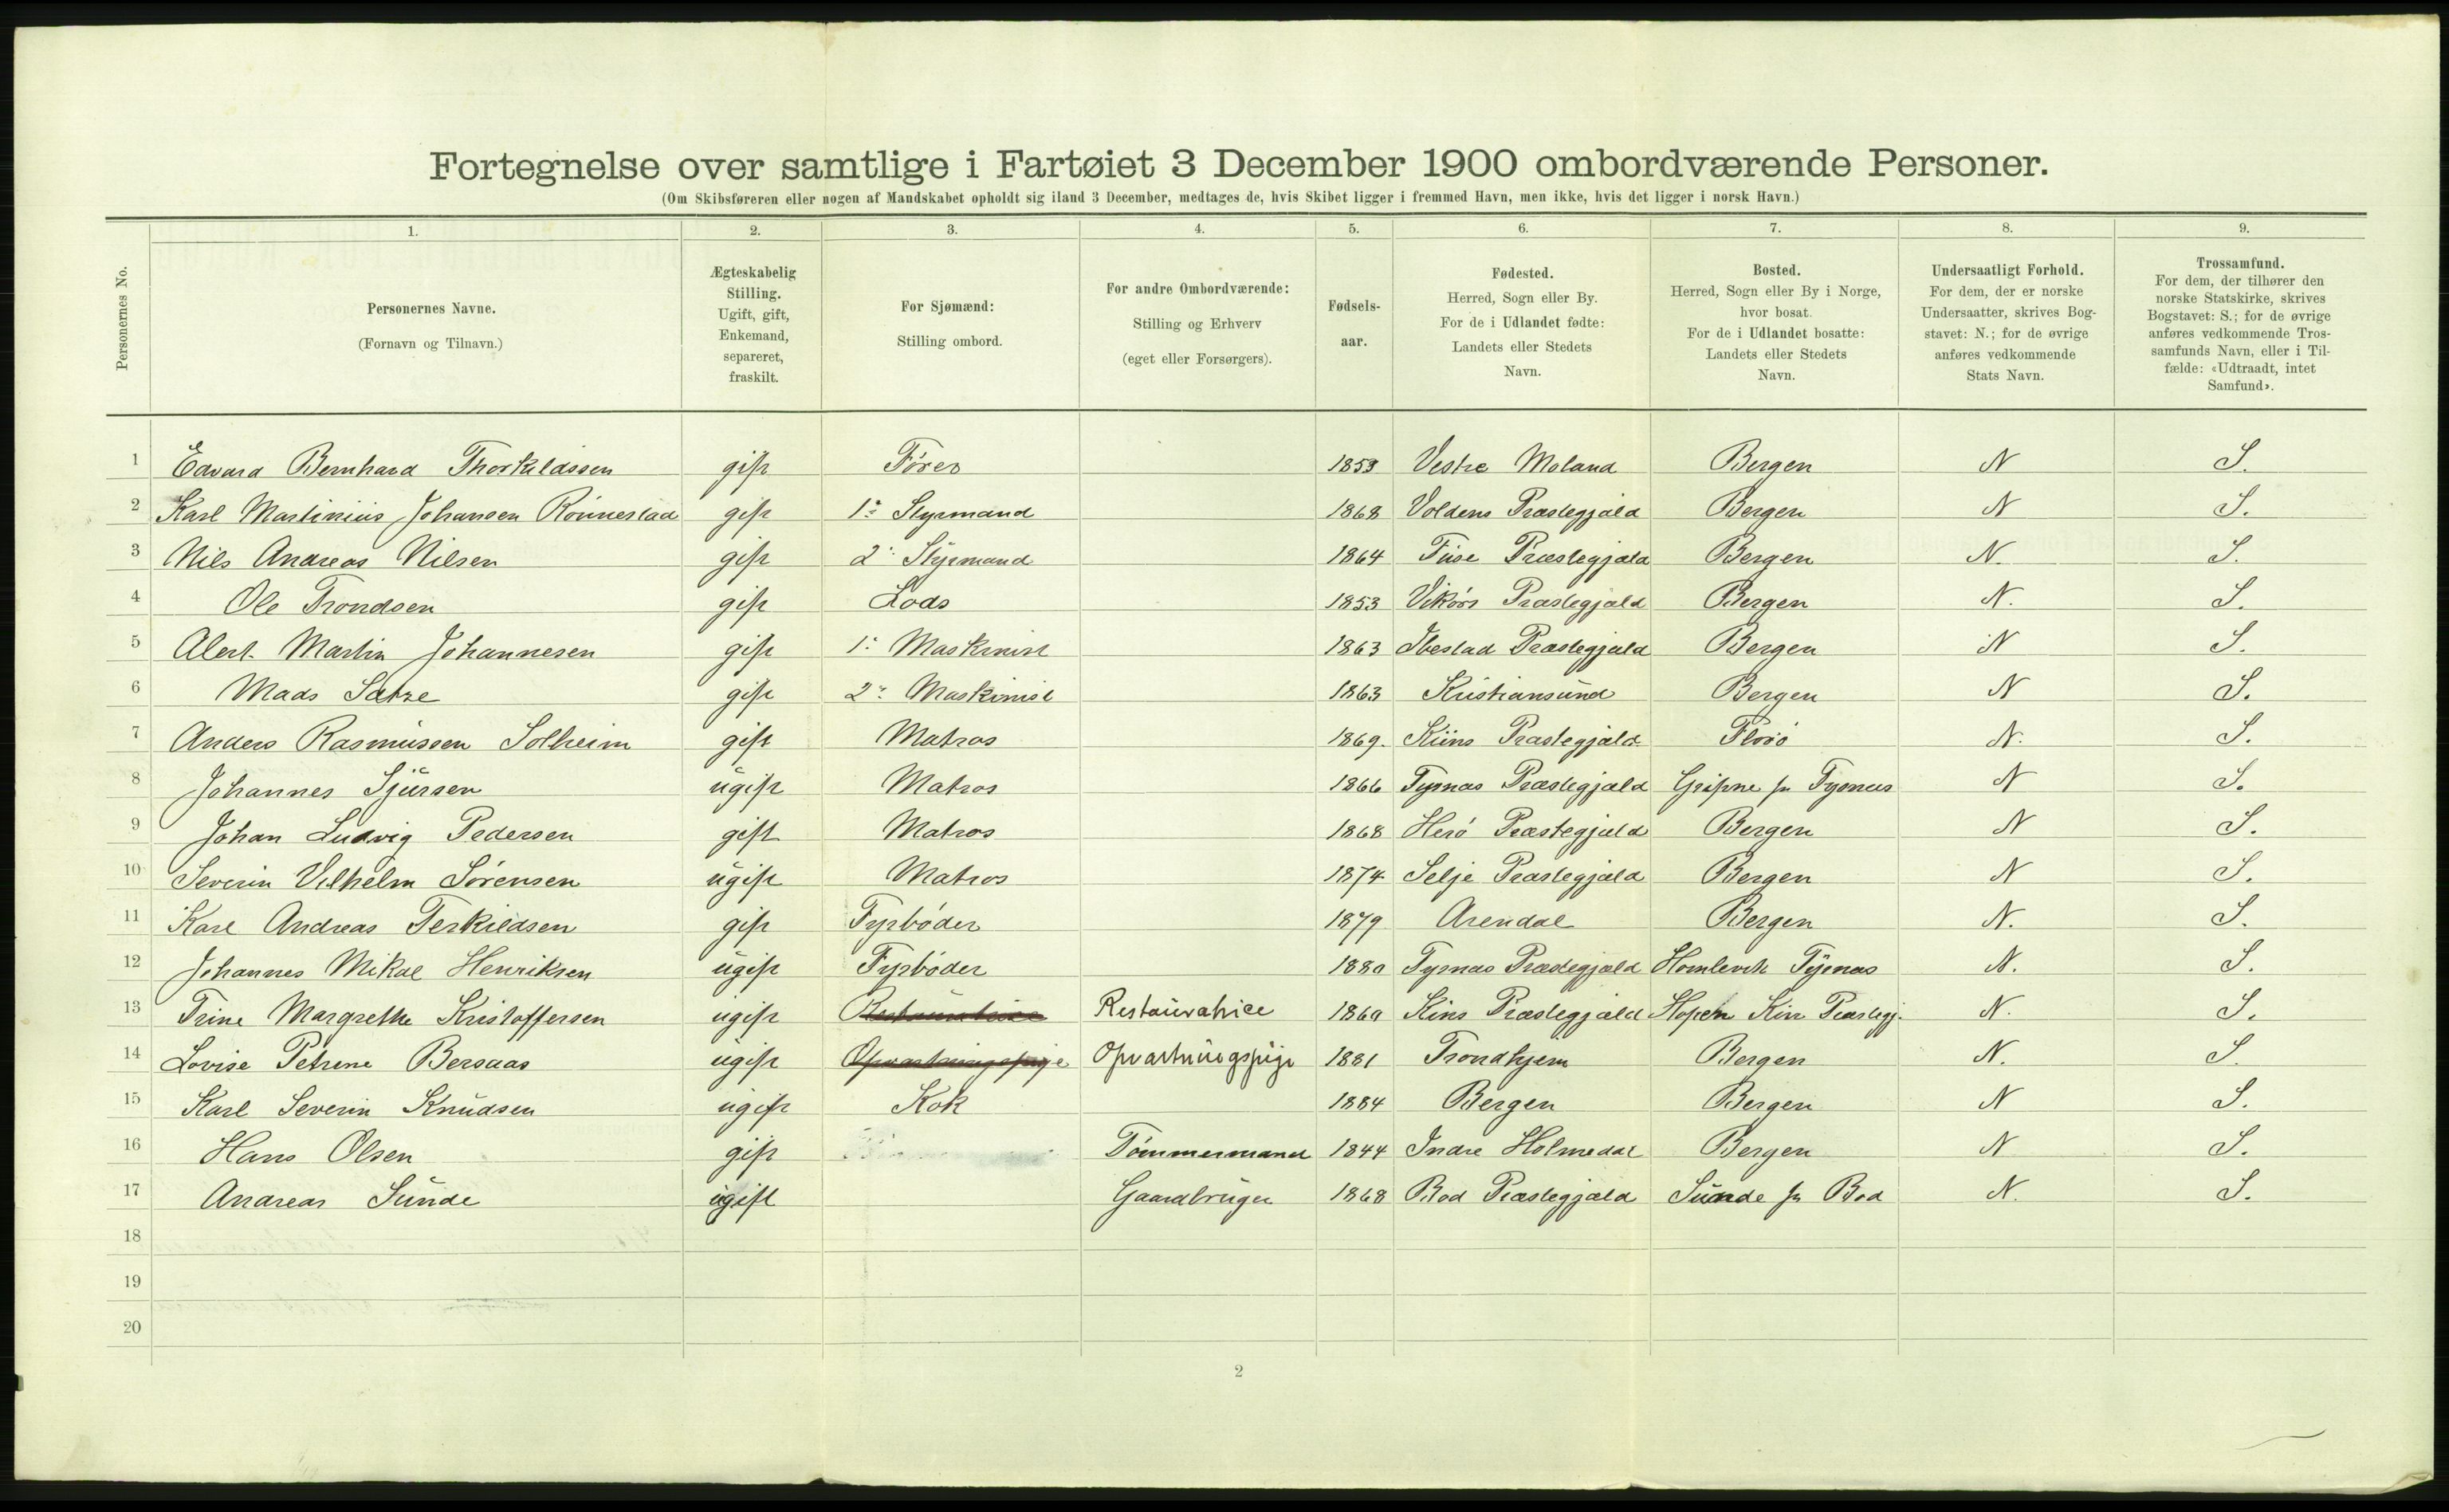 Fortegnelse over samtlige i Fartøiet 3 December 1900 ombordværende Personer.
(Om Skibsføreren eller nogen af Mandskabet opholdt sig iland 3 December, medtages de, hvis Skibet ligger i fremmed Havn, men ikke, hvis det ligger i norsk Havn.)
1. 2. 3. 4. 5. 6. 7. 8. 9.
Personernes No.
Personernes Navne.
(Fornavn og Tilnavn.)
Ægteskabelig
Stilling.
Ugift, gift,
Enkemand,
separeret,
fraskilt.
For Sjømænd:
Stilling ombord.
For andre Ombordværende:
Stilling og Erhverv
(eget eller Forsørgers).
Fødsels-
aar.
Fødested.
Herred, Sogn eller By.
For de i Udlandet fødte:
Landets eller Stedets
Navn.
Bosted.
Herred, Sogn eller By i Norge,
hvor bosat.
For de i Udlandet bosatte:
Landets eller Stedets
Navn.
Undersaatligt Forhold.
For dem, der er norske
Undersaatter, skrives Bog-
stavet: N.; for de øvrige
anføres vedkommende
Stats Navn.
Trossamfund.
For dem, der tilhører den
norske Statskirke, skrives
Bogstavet: S.; for de øvrige
anføres vedkommende Tros-
samfunds Navn, eller i Til-
fælde: «Udtraadt, intet
Samfund».
1 Edvard Bernhard Thorkildssen gift Fører 1853 Vestre Moland Bergen N S.
2 Karl Martinius Johansen Rönnestad gift 1ste Styrmand 1868 Voldens Præstegjæld Bergen N S.
3 Nils Andreas Nilsen gift 2. Styrmand 1864 Füse Præstegjæld Bergen N. S.
4 Ole Trondsen gift Lods 1853 Vikörs Præstegjæld Bergen N. S.
5 Alert Martin Johannesen gift 1. Maskinist 1863 Ibestad Præstegjæld Bergen N S.
6 Mads Sætre gift 2. Maskinist 1863 Kristiansund Bergen N S.
7 Anders Rasmüssen Solheim gift Matros 1869. Kiins Præstegjæld Florö N. S.
8 Johannes Sjürsen ügift Matros 1866 Tysnæs Præstegjæld Gripne pr Tysnæs N S.
9 Johan Ludvig Pedersen gift Matros 1868 Herö Præstegjæld Bergen N S.
10 Severin Vilhelm Sörensen ügift Matros 1874 Selje Præstegjæld Bergen N S.
11 Karl Andreas Terkildsen gift Fyrböder 1879 Arendal Bergen N. S.
12 Johannes Mikal Henriksen ügift Fyrböder 1880 Tysnæs Præstegjæld Homlevik Tysnæs N. S.
13 Trine Margrethe Kristoffersen ügift Restauratrice Restaüratrice 1860 Kins Præstegjæld Hopen Kin Præstegj. N. S.
14 Lovise Petrine Bersaas ügift Opvartningspige Opvartningspige 1881 Trondhjem Bergen N. S.
15 Karl Severin Knüdsen ügift Kok 1884 Bergen Bergen N S.
16 Hans Olsen gift Tömmermand 1844 Indre Holmedal Bergen N S.
17 Andreas Sünde ügift Gaardbrüger 1868 Bod Præstegjæld Sünde pr Bod N. S.
18
19
20
2